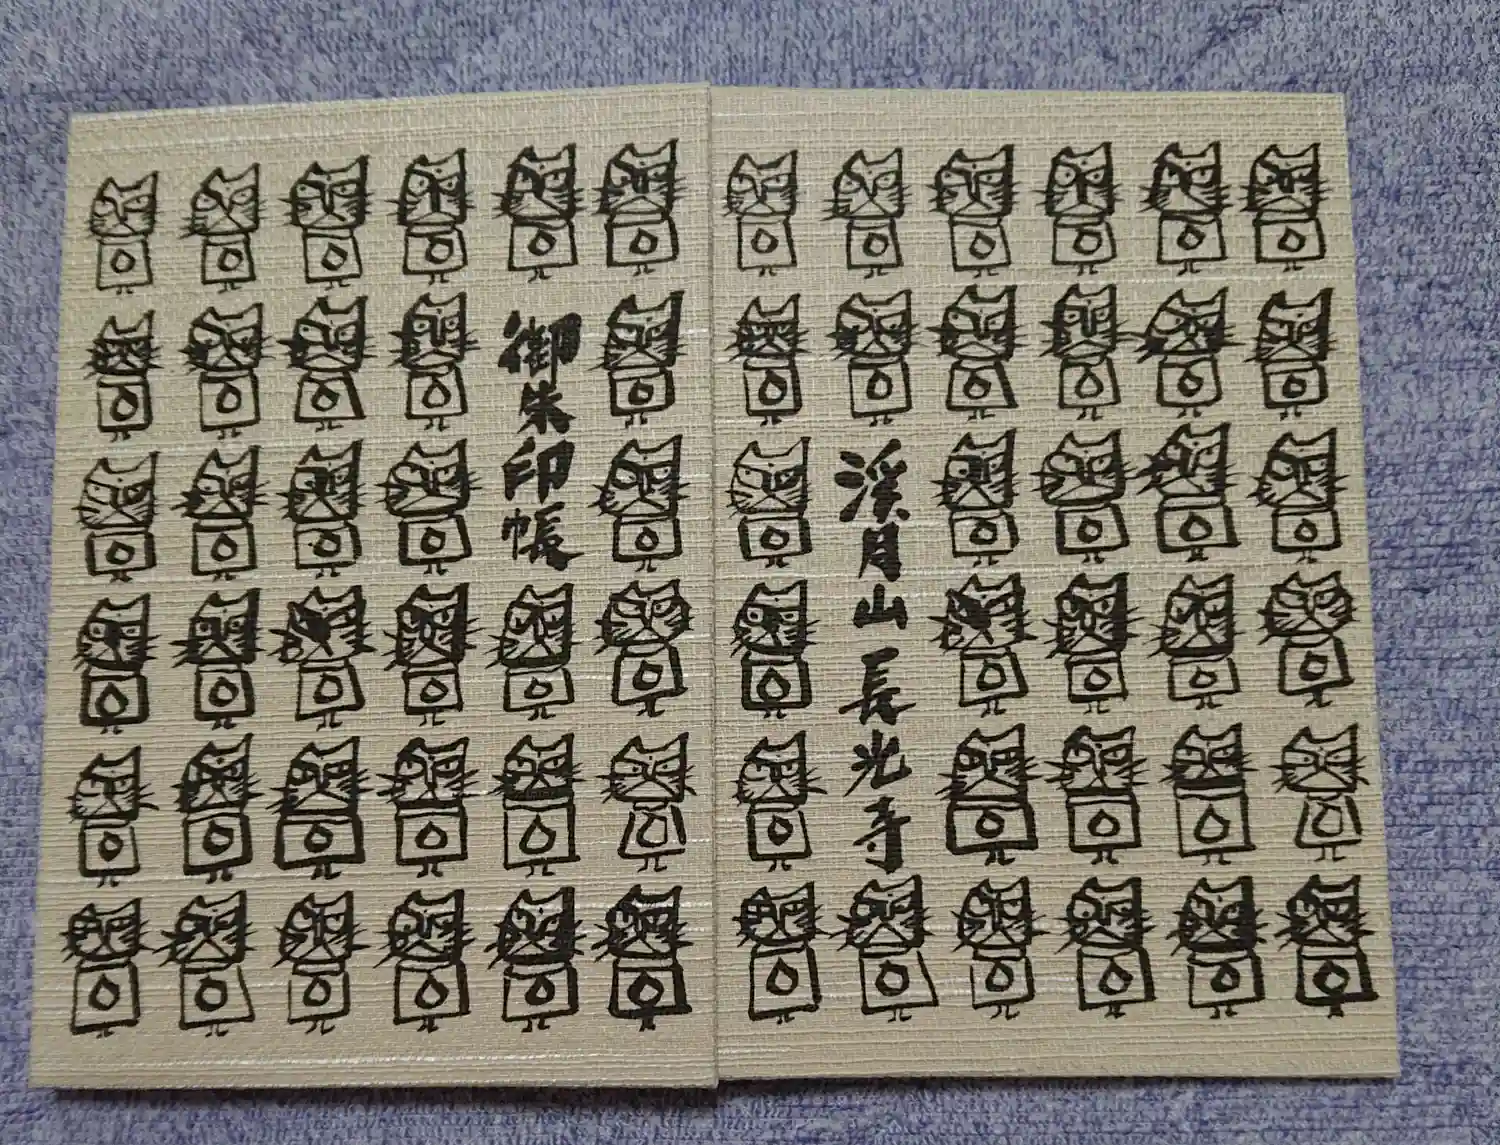 御朱印帳
溪月山長光寺